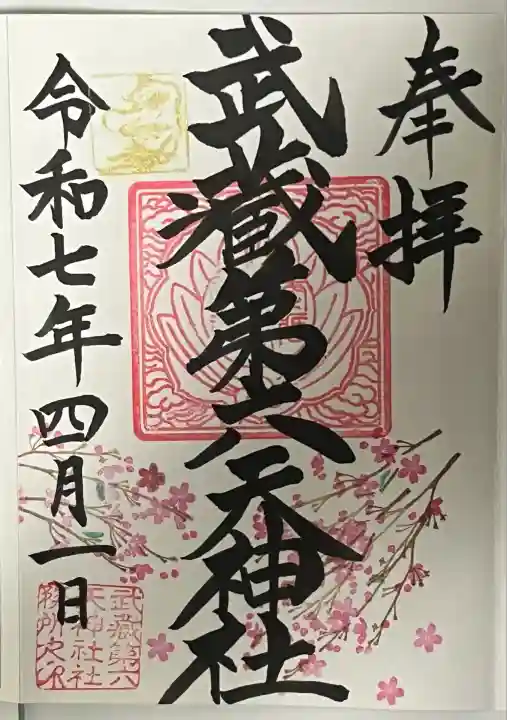 奉拝
武蔵第六天神社
令和七年四月一日
武蔵第六
天神社社
務所之印